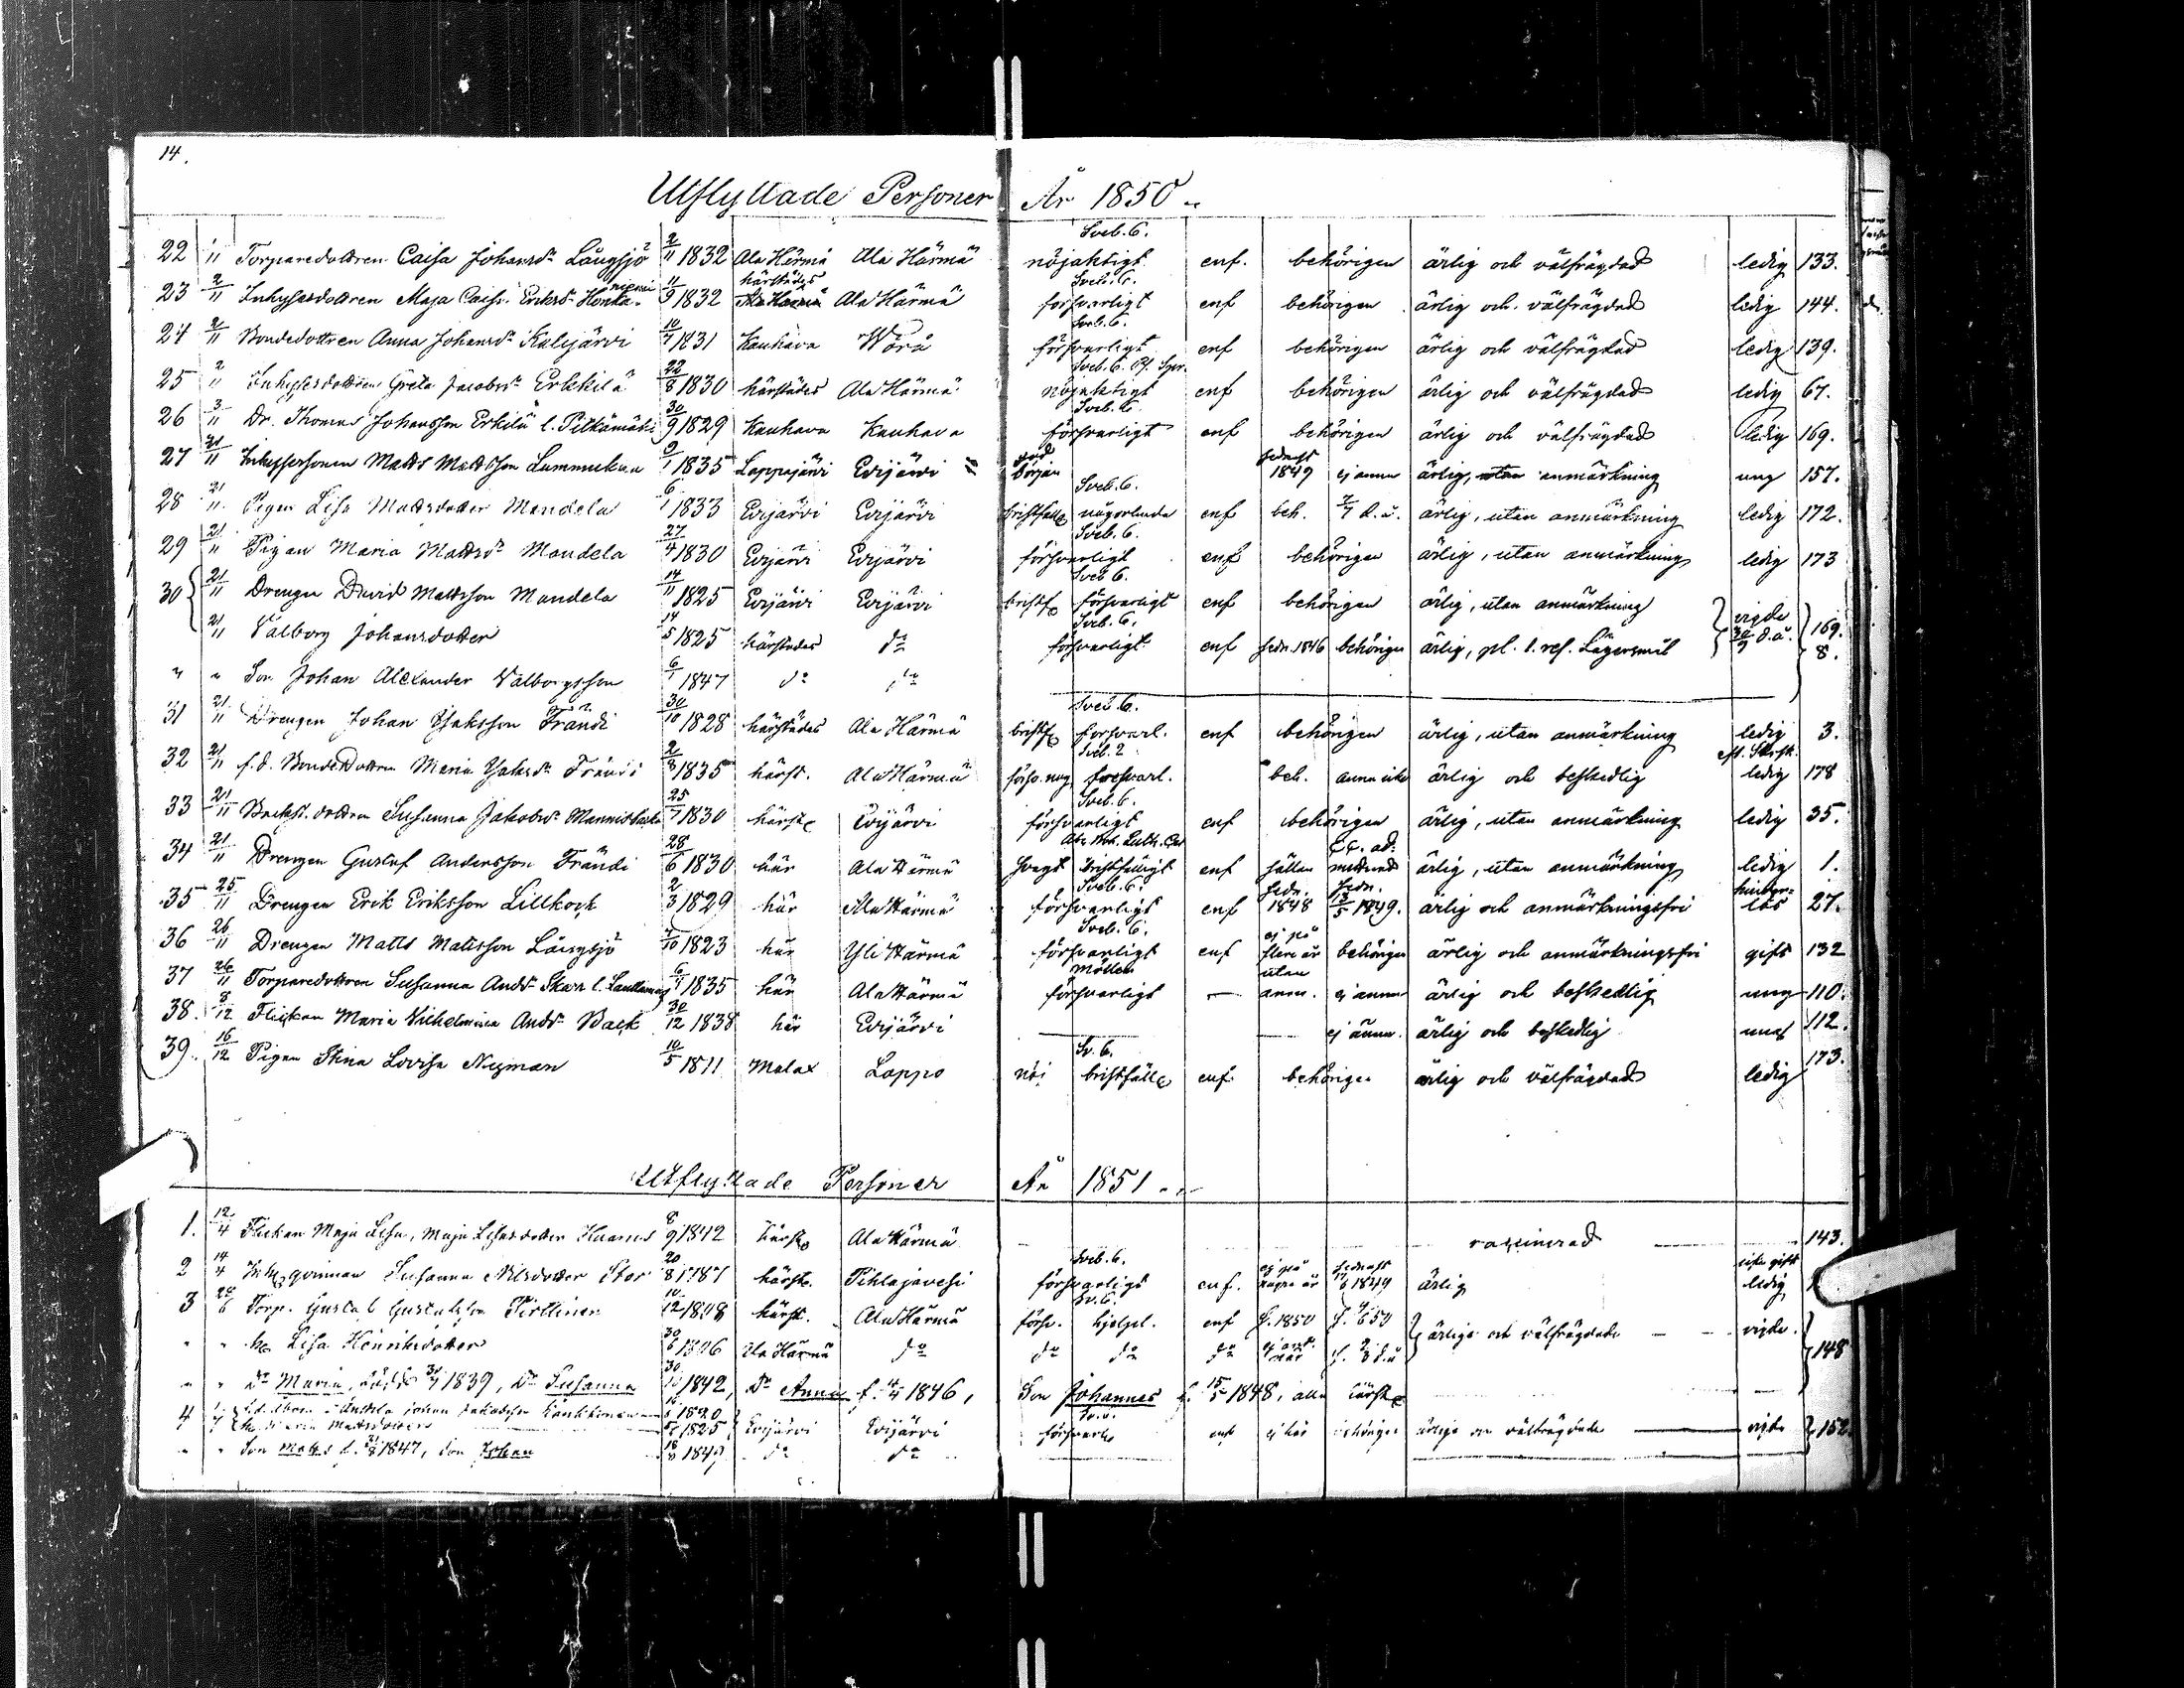 14.
Utflyttade Personer År 1850
22 Torparedottren Caisa Johansdr Långsjö 2/11 1832 Ala Härmä Ala Härmä nöjaktigt Sveb. 6. enf. behörigen ärlig och välfrägdad ledig 133.
23 2/11 Inhysesdottren Maja Caisa Eriksdr 11/9 1832 härstädes Ala Härmä försvarligt Sveb. 6. enf behörigen ärlig och välfrägdad ledig 144.
24 2/11 Bondedottren Anna Johansdr Kalijärvi 10/7 1831 Kauhava Wörå försvarligt Sveb. 6. enf behörigen ärlig och välfrägdad ledig 139.
25 2/11 Inhysesdottren Greta Jacobsdr Erkkilä 22/8 1830 härstädes Ala Härmä nöjaktigt Sveb. 6. enf behörigen ärlig och välfrägdad ledig 67.
26 3/11 Dr. Thomas Johansson Erkilä l. Pitkämäki 30/9 1829 Kauhava Kauhava försvarligt Sveb. 6. enf behörigen ärlig och välfrägdad ledig 169.
27 21/11 Inhysessonen Matts Mattsson Lummukka 1835 Lappajärvi Evijärvi början sednast 1849 ej annu ärlig, utan anmärkning ung 157.
28 21/11 Pigan Lisa Mattsdotter Mandela 6/1 1833 Evijärvi Evijärvi bristfäll. Sveb. 6. någorlunda enf beh. 7/7 d. å. ärlig, utan anmärkning ledig 172.
29 21/11 Pigan Maria Mattsdr Mandela 27/4 1830 Evijärvi Evijärvi försvarligt Sveb. 6. enf behörigen ärlig, utan anmärkning ledig 173
30 21/11 Drengen David Mattsson Mandela 14/11 1825 Evijärvi Evijärvi bristf. Sveb 6. försvarligt enf behörigen ärlig, utan anmärkning vigde
21/11 Valborg Johansdotter 14/5 1825 härstädes do försvarligt Sveb. 6. enf sedn. 1846 behörigen ärlig, pl. l. ref. Lägersmål d. å. 169. 8.
" " Son Johan Alexander Valborgsson 6/1 1847 do do
31 21/11 Drengen Johan Isaksson Frändi 30/10 1828 härstädes Ala Härmä bristf. Sveb. 6. försvarl. enf behörigen ärlig, utan anmärkning ledig 3.
32 21/11 f. d. Bondedottren Maria Isaksdr Frändi 2/3 1835 härst. Ala Härmä Sveb. 2 försvarl. beh. ännu icke ärlig och beskedlig ledig 178
33 21/11 Backst. dottren Susanna Jakobsdr 25/7 1830 härst. Evijärvi försvarligt Sveb. 6. enf behörigen ärlig, utan anmärkning ledig 35.
34 21/11 Drengen Gustaf Andersson Frändi 28/6 1830 här Ala Härmä svagt bristfälligt enf sällan ärlig, utan anmärkning ledig 1.
35 25/11 Drengen Erik Eriksson Lillkock 2/3 1829 här Ala Härmä försvarligt Sveb. 6. enf sedn. 1848 sedn. 13/5 1849. ärlig och anmärkningsfri hinderlös 27.
36 26/11 Drengen Matts Matsson Långsjö 1823 här Yli Härmä försvarligt Sveb. 6. enf ej på flere år behörigen ärlig och anmärkningsfri gift 132
37 26/11 Torparedottren Susanna Andsdr Skarr l. 6/7 1835 här Ala Härmä försvarligt Möller — utan anm. ej annu ärlig och beskedlig ung 110.
38. 8/12 Flickan Maria Vilhelmina Andsdr Back 30/12 1838 här Evijärvi — — ej ännu. ärlig och beskedlig ung 112.
39. 16/12 Pigan Stina Lovisa Nyman 10/5 1811 Malax Lappo nöj Sv. 6. bristfäll. enf. behörigen ärlig och välfrägdad ledig 173.
Utflyttade Personer År 1851
1. 12/4 Flickan Maja Lisa, Maja Lisasdotter 1842 härst. Ala Härmä vaccinerad 143.
2 14/4 Inh. qvinnan Susanna Nilsdotter Stor 20/8 1787 härst. Pihlajavesi försvarligt Sveb. 6. enf. ej på några år sednast 1849 ärlig icke gift ledig
3 28/6 Torp. Gustaf Gustafsson Pirttinen 10/12 1808 härst. Ala Härmä försv. Sv. 6. hjelpl. enf f. 1850 ärliga och välfrägdade — vigde.
" " Lisa Henriksdotter 30/6 1806 Ala Härmä do do do do 148
" " Dr Maria, född 1839, Dr Susanna 30/10 1842, Dr Anna f. 1846, Son Johannes f. 15/5 1848, alla härst.
4 Johan Jakobsson 1820 Evijärvi Evijärvi försvarl. enf ej här behörigen ärliga och välfrägdade vigde 152
Mattsdotter 1825
" " Son Matts f. 1847, son Johan 18/8 1849 do do